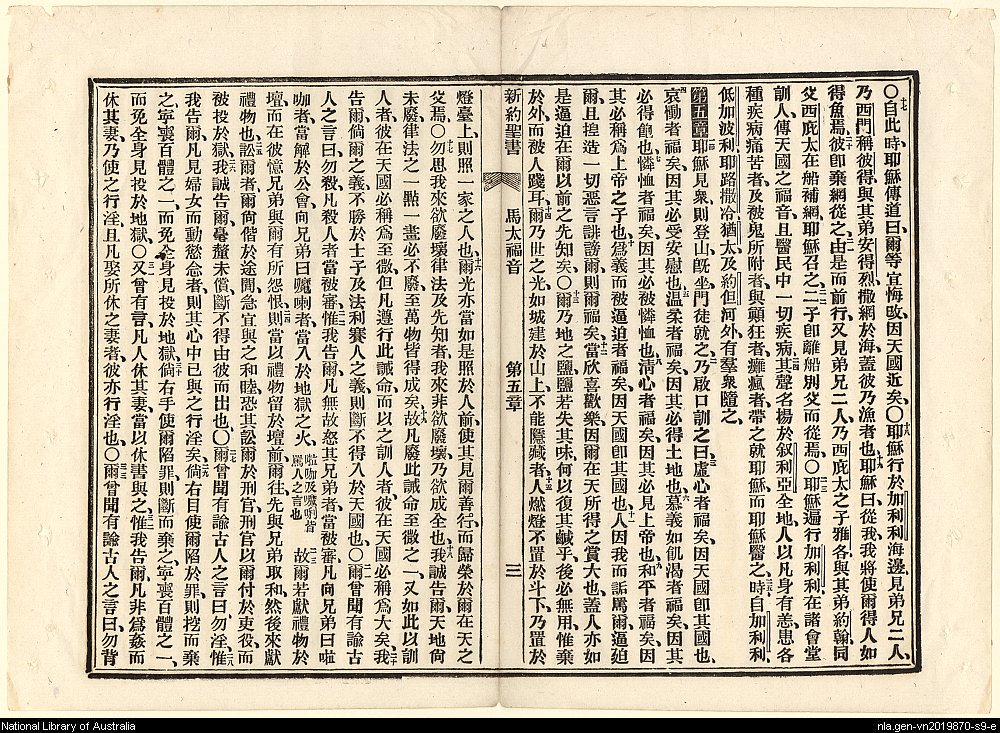 ○自此時耶穌傳道曰爾等宜悔改因天國近矣○耶穌行於加利利海邊見弟兄二人
乃西門稱彼得與其弟安得烈撒網於海蓋彼乃漁者也耶穌曰從我我將使爾得人如
得魚焉彼卽棄網從之由是而前行又見弟兄二人乃西庇太之子雅各與其弟約翰同
父西庇太在船補網耶穌召之二子卽離船別父而從焉○耶穌遍行加利利在諸會堂
訓人傳天國之福音且醫民中一切疾病其聲名揚於叙利亞全地人以凡身有恙患各
種疾病痛苦者及被鬼所附者與顚狂者癱瘋者帶之就耶穌而耶穌醫之時自加利利
低加波利耶路撒冷猶太及約但河外有羣衆隨之
第五章耶穌見衆則登山旣坐門徒就之乃啟口訓之曰虛心者福矣因天國卽其國也
哀慟者福矣因其必受安慰也温柔者福矣因其必得土地也慕義如飢渴者福矣因其
必得飽也憐恤者福矣因其必被憐恤也淸心者福矣因其必見上帝也和平者福矣因
其必稱爲上帝之子也爲義而被逼迫者福矣因天國卽其國也人因我而詬罵爾逼廹
爾且揑造一切惡言誹謗爾則爾福矣當欣喜歡樂因爾在天所得之賞大也蓋人亦如
是逼迫在爾以前之先知矣○爾乃地之鹽鹽若失其味何以復其鹹乎後必無用惟棄
於外而被人踐耳爾乃世之光如城建於山上不能隱藏者人燃燈不置於斗下乃置於
新約聖書 馬太福音 第五章 三
燈臺上則照一家之人也爾光亦當如是照於人前使其見爾善行而歸榮於爾在天之
父焉○勿思我來欲廢壞律法及先知者我來非欲廢壞乃欲成全也我誠告爾天地尙
未廢律法之一點一畫必不廢至萬物皆得成矣故凡廢此誡命至微之一又如此以訓
人者彼在天國必稱爲至微但凡遵行此誡命而以之訓人者彼在天國必稱爲大矣我
告爾倘爾之義不勝於士子及法利賽人之義則斷不得入於天國也○爾曾聞有諭古
人之言曰勿殺凡殺人者當被審惟我告爾凡無故怒其兄弟者當被審凡向兄弟曰啦
咖者當解於公會向兄弟曰嚈唎者當入於地獄之火啦咖及嚈唎皆罵人之言也故爾若獻禮物於
壇而在彼憶兄弟與爾有所怨恨則當以禮物留於壇前爾往先與兄弟取和然後來獻
禮物也訟爾者爾尙偕於途間急宜與之和睦恐其訟爾於刑官刑官以爾付於吏役而
被投於獄我誠告爾毫釐未償斷不得由彼而出也○爾曾聞有諭古人之言曰勿淫惟
我告爾凡見婦女而動慾念者則其心中已與之行淫矣倘右目使爾陷於罪則挖而棄
之寧喪百體之一而免全身見投於地獄倘右手使爾陷罪則斷而棄之寧喪百體之一
而免全身見投於地獄○又曾有言凡人休其妻當以休書與之惟我告爾凡非爲姦而
休其妻乃使之行淫且凡娶所休之妻者彼亦行淫也○爾曾聞有諭古人之言曰勿背
National Library of Australia
nla.gen-vn2019870-s9-e